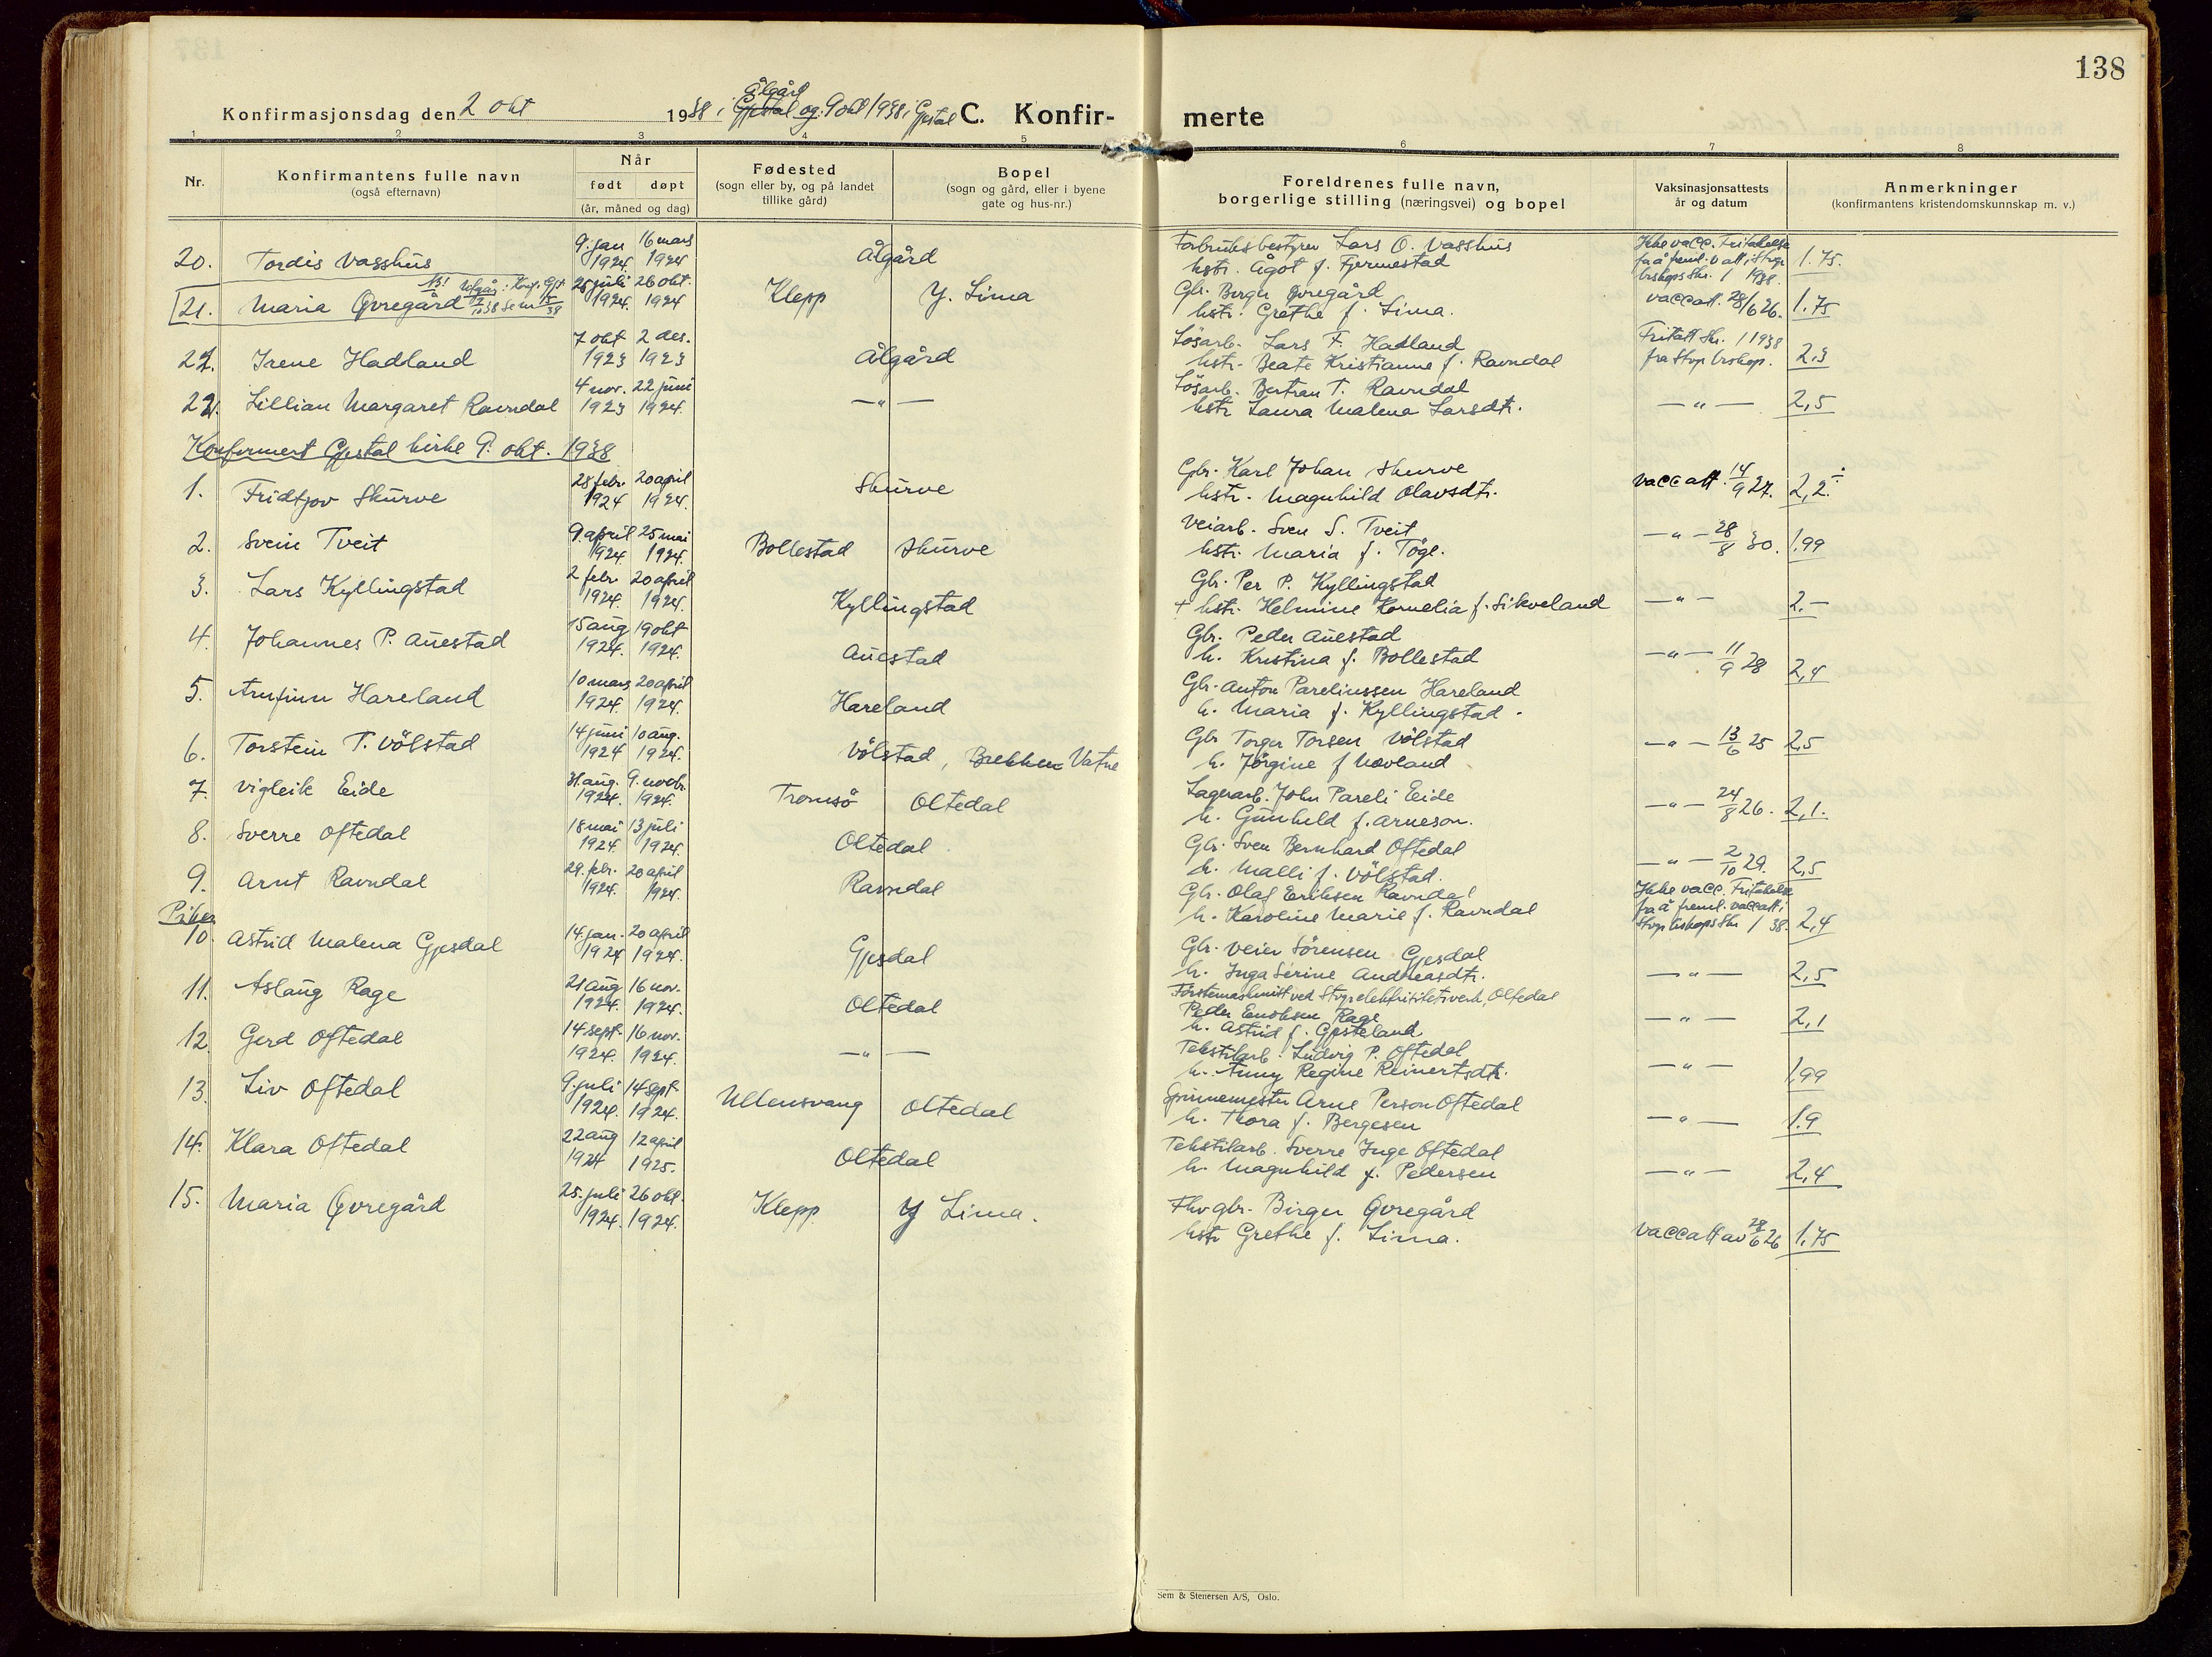 138
Konfirmasjonsdag den 2 okt 1938 i Gjestal Ålgård og 9 okt 1938 i Gjestal C. Konfirmerte
1 2 3 4 5 6 7 8
Nr.
Konfirmantens fulle navn
(også efternavn)
Når
født døpt
(år, måned og dag)
Fødested
(sogn eller by, og på landet
tillike gård)
Bopel
(sogn og gård, eller i byene
gate og hus-nr.)
Foreldrenes fulle navn,
borgerlige stilling (næringsvei) og bopel
Vaksinasjonsattests
år og datum
Anmerkninger
(konfirmantens kristendomskunnskap m. v.)
20. Tordis Vasshus 9. jan 1924. 16 mars 1924 Ålgård
Forbruksbestyrer Lars O. Vasshus
hstr. Ågot f. Fjermestad
Ikke vacc. Fritakelse
fra å freml. v att i Stvgr
biskops Skr. / 1938.
1.75.
21. Maria Øvregård 25 juli 1924. 26 okt. 1924 Klepp Y. Lima
Gbr. Birger Øvregård
hstr. Grethe f. Lima.
vacc att. 28/6 26. 1.75
22. Irene Hadland 7 okt 1923 2 des. 1923 Ålgård
Løsarb. Lars F. Hadland
hstr. Beate Kristianne f. Ravndal
Fritatt Skr. / 1938
fra Stvgr biskop.
2,3
22. Lillian Margaret Ravndal 4 nov. 1923 22 juni 1924. —〃—
Løsarb. Bertran T. Ravndal
hstr Laura Malena Larsdtr.
—〃— 2,5
Konfirmert Gjestal kirke 9. okt. 1938
1. Fridtjov Skurve 28 febr. 1924 20 april 1924. Skurve
Gbr. Karl Johan Skurve
hstr. Magnhild Olavsdtr.
vacc att. 14/9 27. 2,2 ÷
2. Svein Tveit 9. april 1924. 25 mai 1924. Bollestad Skurve
Veiarb. Sven S. Tveit
hstr. Maria f. Tøge.
—〃— 28/8 30. 1,99
3. Lars Kyllingstad 2 febr. 1924. 20 april 1924. Kyllingstad
Gbr. Per P. Kyllingstad
+ hstr. Helmine Kornelia f. Sikveland
—〃— 2.—
4. Johannes P. Auestad 15 aug 1924. 19 okt 1924. Auestad
Gbr. Peder Auestad
h. Kristina f. Bollestad
—〃— 11/9 28 2,4
5. Arnfinn Hareland 10 mars 1924. 20 april 1924. Hareland
Gbr. Anton Pareliussen Hareland
h. Maria f. Kyllingstad.
6. Torstein T. Vølstad 14 juni 1924 10 aug. 1924. Vølstad, Brekken Vatne
Gbr Torger Torsen Vølstad
h. Jørgine f Hovland
—〃— 13/6 25 2,5
7. Vigleik Eide 31. aug. 1924. 9. novbr. 1924. Tromsø Oltedal
Lagerarb. John Pareli Eide
h. Gunhild f. Arneson.
—〃— 24/8 26. 2,1.
8. Sverre Oftedal 18 mai 1924. 13 juli 1924. Oltedal
Gbr. Sven Bernhard Oftedal
h. Malli f. Vølstad.
—〃— 2/10 29. 2,5
9. Arnt Ravndal 29. febr. 1924. 20 april 1924. Ravndal
Gbr. Olaf Eriksen Ravndal
h. Karoline Marie f. Ravndal
Ikke vacc. Fritakelse
fra å freml. vaccatt i
Stvgr biskops Skr / 38.
2,4
Piker
10. Astrid Malena Gjesdal 14. jan. 1924 20 april 1924. Gjesdal
Gbr. Veier Sørensen Gjesdal
h. Inga Serine Andreasdtr.
—〃— 2,5
11. Aslaug Rage 21 aug 1924. 16 nov. 1924. Oltedal
Førstemaskinist ved Stvgr elektrisitetsverk, Oltedal
Peder Enoksen Rage
h. Astrid f. Gjesteland
—〃— 2,1
12. Gerd Oftedal 14 sept. 1924. 16 nov. 1924. —〃—
Tekstilarb. Ludvig P. Oftedal
h. Anny Regine Reinertsdtr.
—〃— 1,99
13. Liv Oftedal 9. juli 1924. 14 sept. 1924. Ullensvang Oltedal
Spinnemester Arne Person Oftedal
h. Thora f. Bergesen
—〃— 1.9
14. Klara Oftedal 22 aug 1924 12 april 1925. Oltedal
Tekstilarb. Sverre Inge Oftedal
h. Magnhild f. Pedersen
—〃— 2,4
15. Maria Øvregård 25. juli 1924. 26 okt. 1924. Klepp Y Lima.
Fhv gbr. Birger Øvregård
hstr Grethe f. Lima.
vacc att av 28/6 26 1,75
Sem & Stenersen A/S, Oslo.